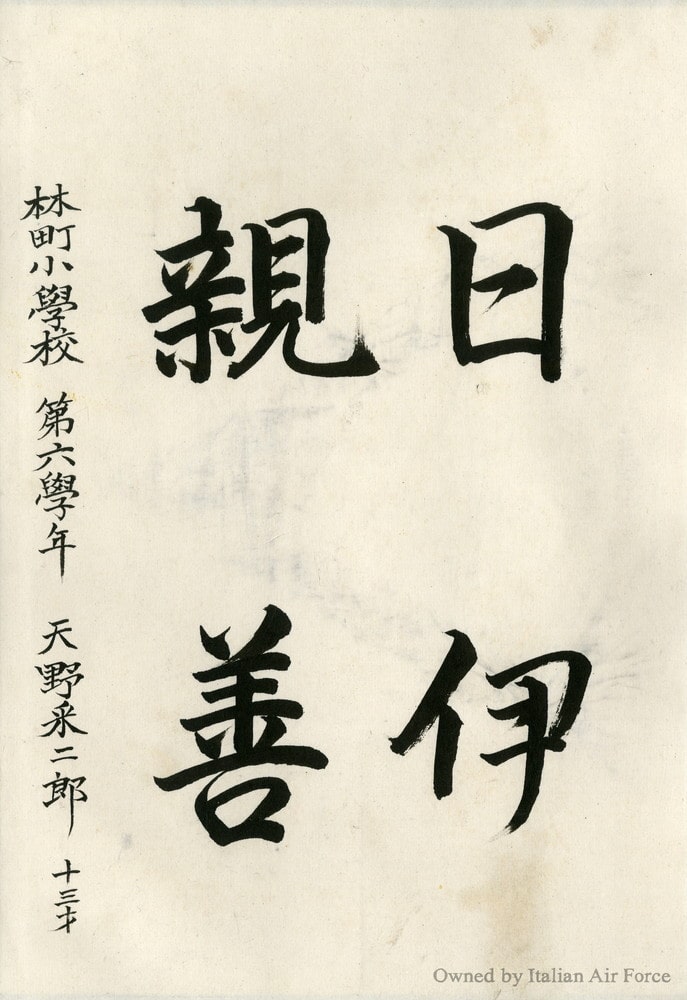 日伊
親善
林町小學校 第六學年 天野采二郎 十三才
Owned by Italian Air Force